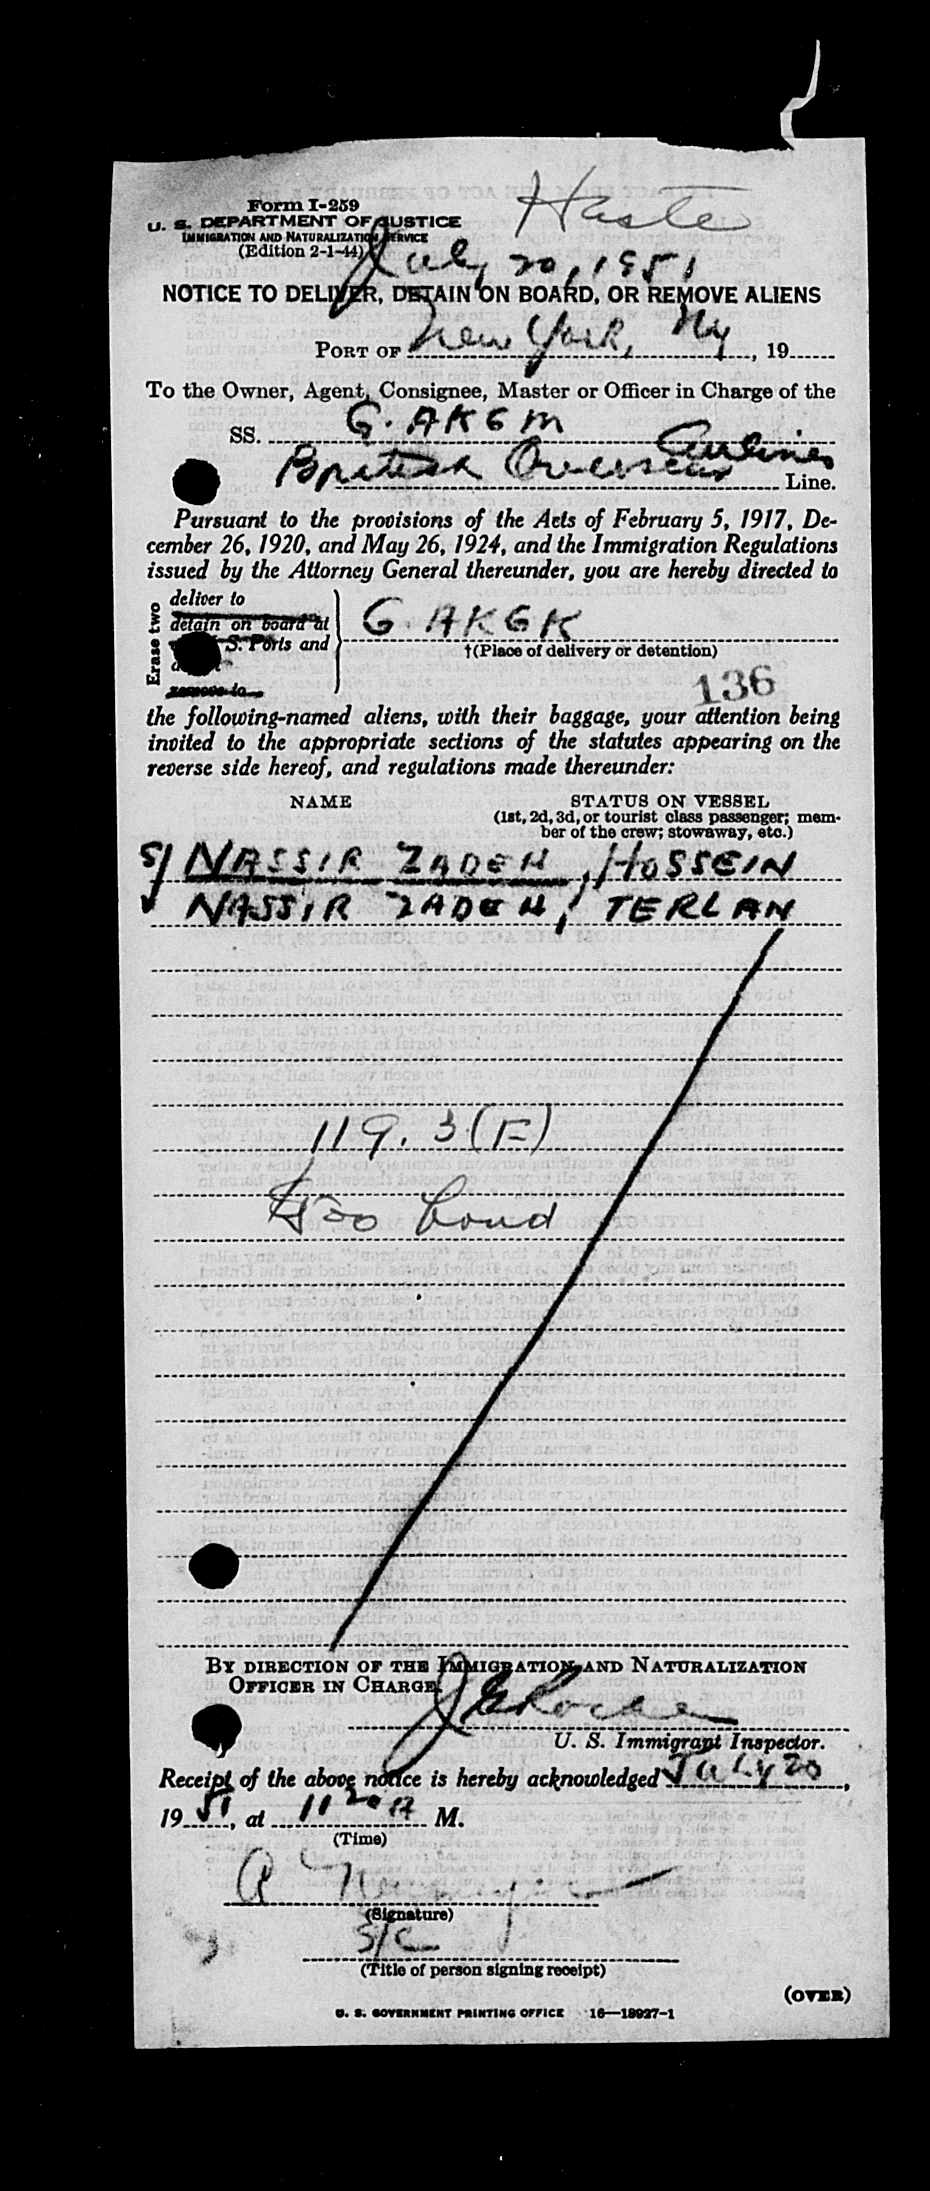 Haste
Form I-259
U. S. DEPARTMENT OF JUSTICE
IMMIGRATION AND NATURALIZATION SERVICE
(Edition 2-1-44)
July 20, 1951
NOTICE TO DELIVER, DETAIN ON BOARD, OR REMOVE ALIENS
PORT OF New York, NY, 19
To the Owner, Agent, Consignee, Master or Officer in Charge of the
SS. G. AKGM
British Overseas Airlines Line.
Pursuant to the provisions of the Acts of February 5, 1917, De-
cember 26, 1920, and May 26, 1924, and the Immigration Regulations
issued by the Attorney General thereunder, you are hereby directed to
Erase two
deliver to
detain on board at
S. Ports and
remove to
G. AKGK
†(Place of delivery or detention)
136
the following-named aliens, with their baggage, your attention being
invited to the appropriate sections of the statutes appearing on the
reverse side hereof, and regulations made thereunder:
NAME STATUS ON VESSEL
(1st, 2d, 3d, or tourist class passenger; mem-
ber of the crew; stowaway, etc.)
NASSIR ZADEH, HOSSEIN
NASSIR ZADEH, TERLAN
119. 3(E)
$500 bond
BY DIRECTION OF THE IMMIGRATION AND NATURALIZATION
OFFICER IN CHARGE.
U. S. Immigrant Inspector.
Receipt of the above notice is hereby acknowledged July 20,
1951, at 11 20 A M.
(Time)
(Signature)
S/C
(Title of person signing receipt)
(OVER)
U. S. GOVERNMENT PRINTING OFFICE 16—18927-1